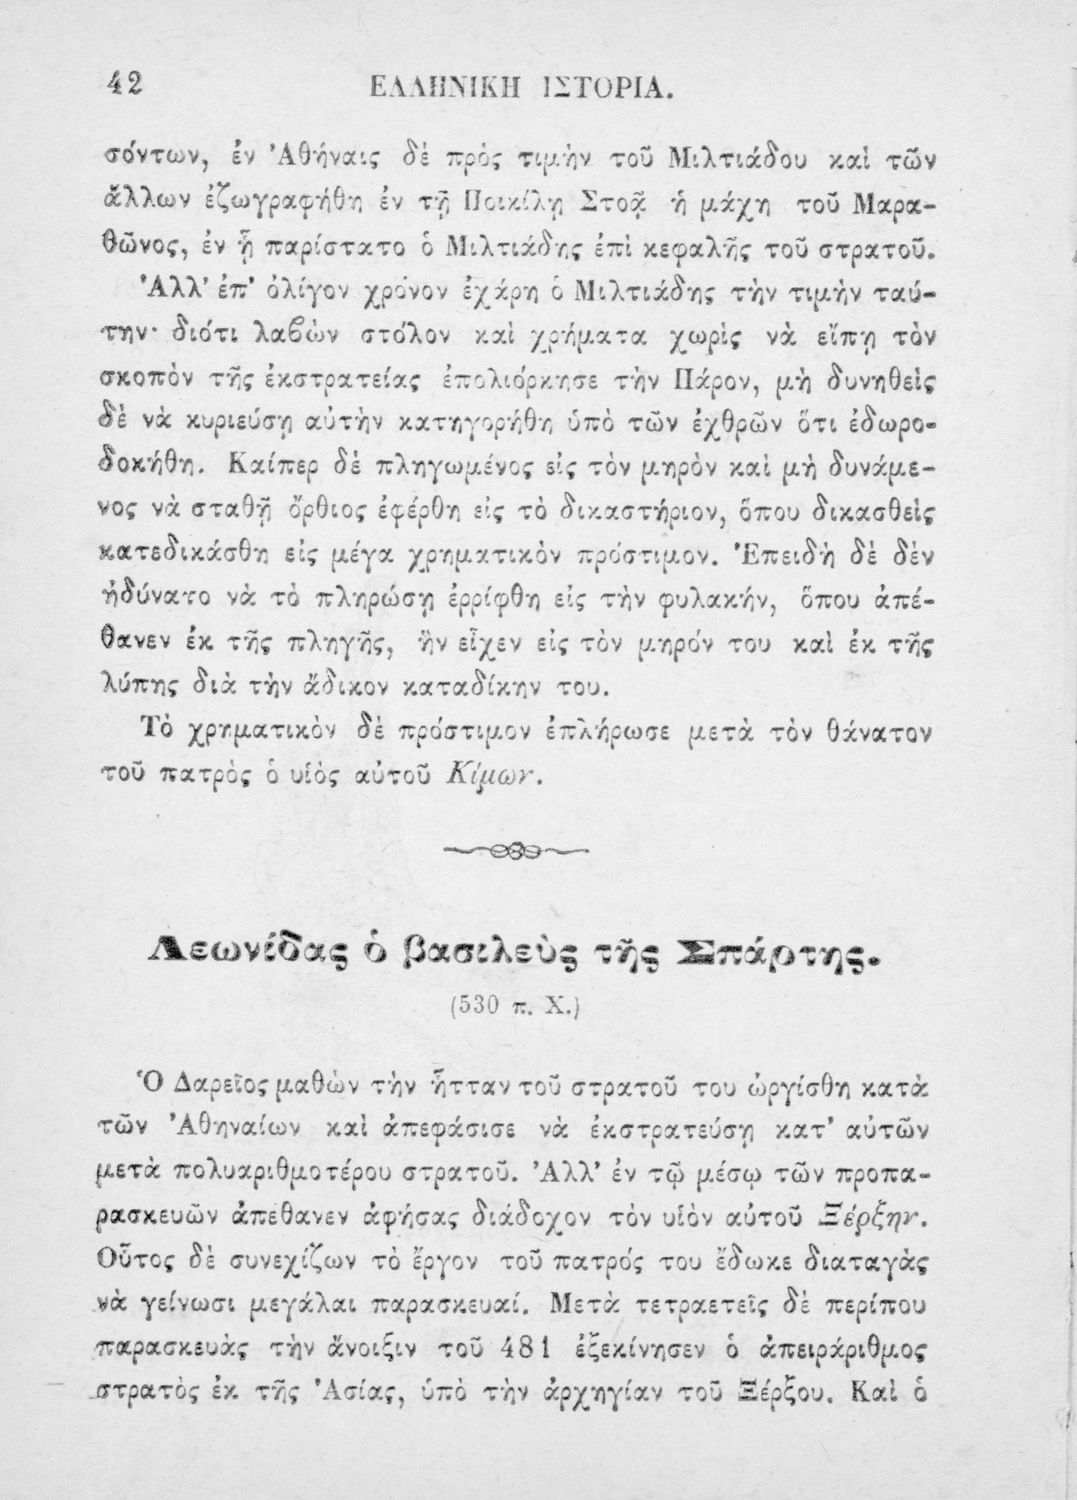 42 ΕΛΛΗΝΙΚΗ ΙΣΤΟΡΙΑ.
σόντων, ἐν Ἀθήναις δὲ πρὸς τιμὴν τοῦ Μιλτιάδου καὶ τῶν
ἄλλων ἐζωγραφήθη ἐν τῇ Ποικίλῃ Στοᾷ ἡ μάχη τοῦ Μαρα-
θῶνος, ἐν ᾗ παρίστατο ὁ Μιλτιάδης ἐπὶ κεφαλῆς τοῦ στρατοῦ.
Ἀλλ’ ἐπ’ ὀλίγον χρόνον ἐχάρη ὁ Μιλτιάδης τὴν τιμὴν ταύ-
την· διότι λαβὼν στόλον καὶ χρήματα χωρὶς νὰ εἴπῃ τὸν
σκοπὸν τῆς ἐκστρατείας ἐπολιόρκησε τὴν Πάρον, μὴ δυνηθεὶς
δὲ νὰ κυριεύσῃ αὐτὴν κατηγορήθη ὑπὸ τῶν ἐχθρῶν ὅτι ἐδωρο-
δοκήθη. Καίπερ δὲ πληγωμένος εἰς τὸν μηρὸν καὶ μὴ δυνάμε-
νος νὰ σταθῇ ὄρθιος ἐφέρθη εἰς τὸ δικαστήριον, ὅπου δικασθεὶς
κατεδικάσθη εἰς μέγα χρηματικὸν πρόστιμον. Ἐπειδὴ δὲ δὲν
ἠδύνατο νὰ τὸ πληρώσῃ ἐρρίφθη εἰς τὴν φυλακήν, ὅπου ἀπέ-
θανεν ἐκ τῆς πληγῆς, ἣν εἶχεν εἰς τὸν μηρόν του καὶ ἐκ τῆς
λύπης διὰ τὴν ἄδικον καταδίκην του.
Τὸ χρηματικὸν δὲ πρόστιμον ἐπλήρωσε μετὰ τὸν θάνατον
τοῦ πατρὸς ὁ υἱὸς αὐτοῦ Κίμων.
Λεωνίδας ὁ βασιλεὺς τῆς Σπάρτης.
(530 π. Χ.)
Ὁ Δαρεῖος μαθὼν τὴν ἧτταν τοῦ στρατοῦ του ὠργίσθη κατὰ
τῶν Ἀθηναίων καὶ ἀπεφάσισε νὰ ἐκστρατεύσῃ κατ’ αὐτῶν
μετὰ πολυαριθμοτέρου στρατοῦ. Ἀλλ’ ἐν τῷ μέσῳ τῶν προπα-
ρασκευῶν ἀπέθανεν ἀφήσας διάδοχον τὸν υἱὸν αὐτοῦ Ξέρξην.
Οὗτος δὲ συνεχίζων τὸ ἔργον τοῦ πατρός του ἔδωκε διαταγὰς
νὰ γείνωσι μεγάλαι παρασκευαί. Μετὰ τετραετεῖς δὲ περίπου
παρασκευὰς τὴν ἄνοιξιν τοῦ 481 ἐξεκίνησεν ὁ ἀπειράριθμος
στρατὸς ἐκ τῆς Ἀσίας, ὑπὸ τὴν ἀρχηγίαν τοῦ Ξέρξου. Καὶ ὁ